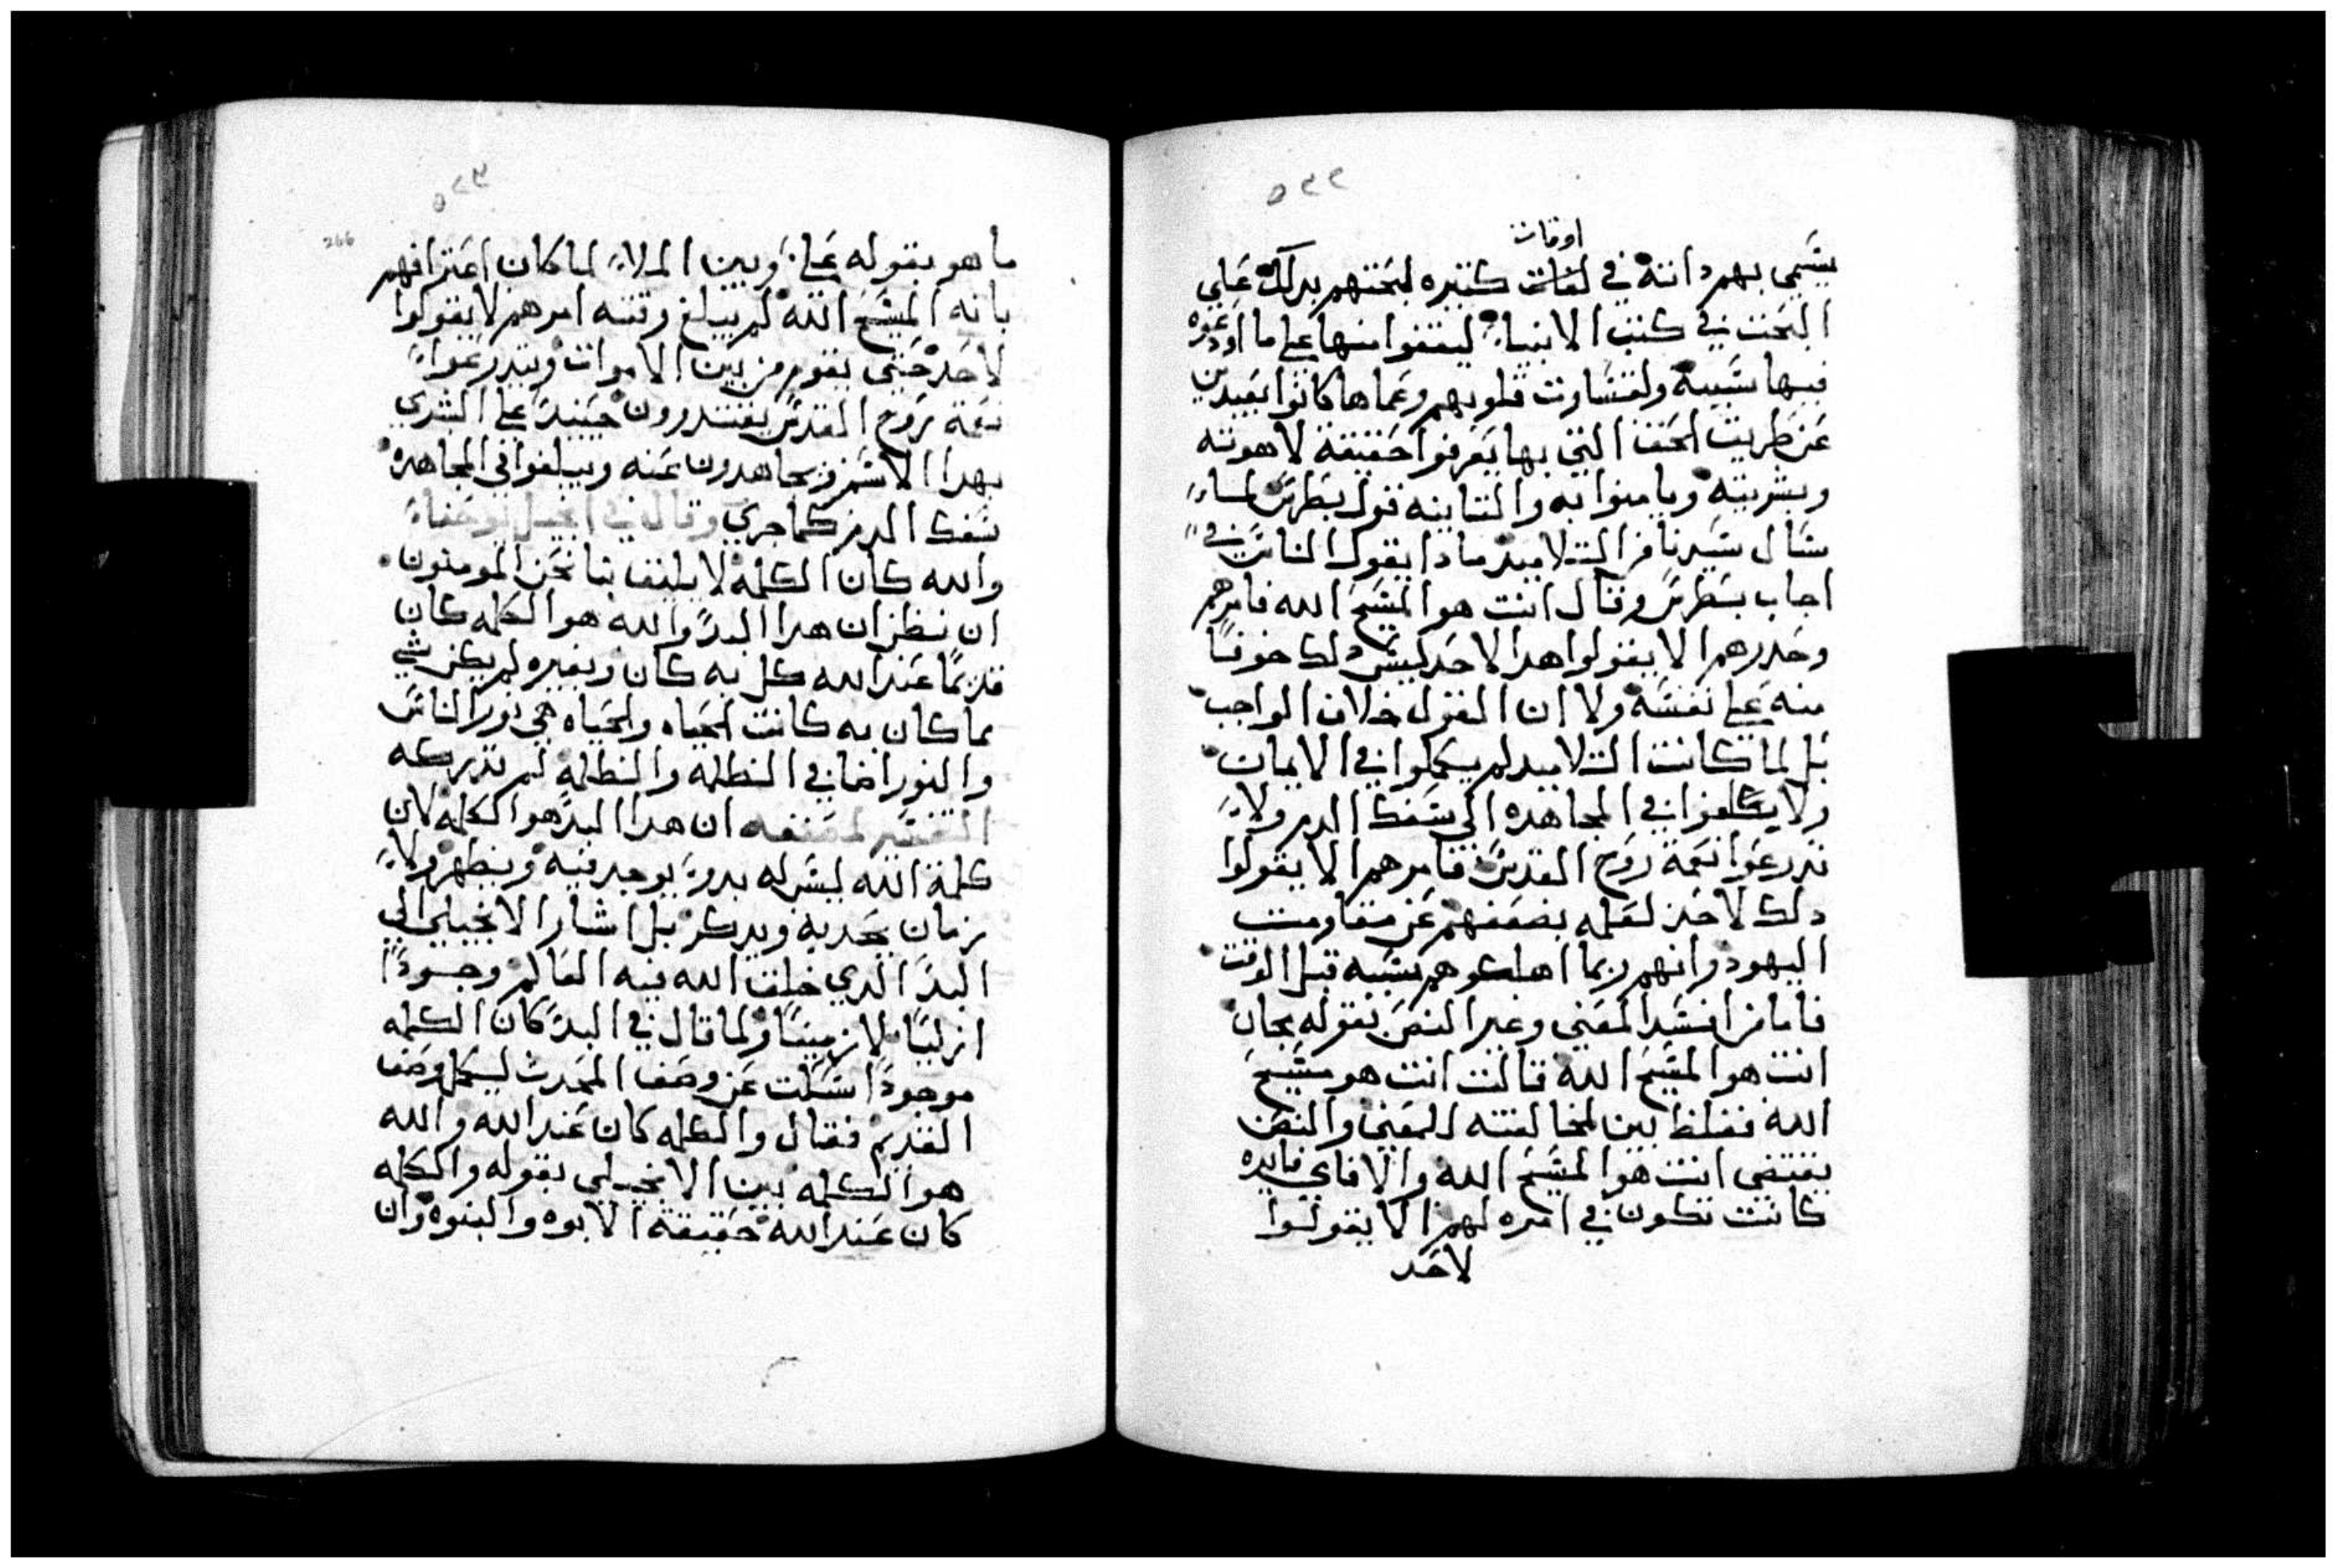 ٥٢٢
اوقات
يسمي بهم داته في لغات كتيره ليحتهم بدلك علي
البحت في كتب الانبيا ليقفوا منها علي ما اودعوه
فيها بسببه ولقساوت قلوبهم وعماها كانوا بعيدين
عن طريق الحق التي بها يعرفوا حقيقة لاهوته
وبشريته ويامنوا به والتانيه قول بطرس لما
سال سيدنا من التلاميد مادا يقول الناس في
اجاب بطرس وقال انت هو المسيح الله فامرهم
وحدرهم الا يقولوا هدا لاحد ليس دلك خوفا
منه علي نفسه ولا ان القول خلاف الواجب
بل لما كانت التلاميد لم يكملوا في الايمان
ولا يبلغوا في المجاهده الي سفك الدم ولا
تدرعوا نعمة روح القدس فامرهم الا يقولوا
دلك لاحد لعلمه بضعفهم عن مقاومت
اليهود وانهم ربما اهلكوهم بسببه قبل الوقت
فاما من افسد المعني وغير النص بقوله بجان
انت هو المسيح الله قالت انت هو مسيح
الله فغلط بين لمخالفته للمعني والنص
يقتضي انت هو المسيح الله والا فاي فايده
كانت تكون في امره لهم الا يقولوا
لاحد
٥٢٣
266
ما هو يقوله علي وبين الملا لما كان اعترافهم
بانه المسيح الله لم يبلغ وقته امرهم لا يقولوا
لاحد حتي يقوم من بين الاموات ويتدرعوا
نعمة روح القدس يقتدرون حينيد علي البشري
بهدا الاسم ويجاهدون عنه ويبلغوا في المجاهده
سفك الدم كما جري وقال في انجيل يوحنا
والله كان الكلمه لا يليق بنا نحن المومنون
ان نظن ان هدا البدء والله هو الكلمه كان
قديما عند الله كل به كان وبغيره لم يكن شي
مما كان به كانت الحياه والحياه هي نور الناس
والنور اضا في الظلمه والظلمه لم تدركه
التفسير لمصنفه ان هدا البدء هو الكلمه لان
كلمة الله ليس له بدء يوجد فيه ويظهر ولا
زمان يحد به ويدكر بل اشار الانجيلي الي
البدء الدي خلق الله فيه العالم وجودا
ازليا لا زمينيا ولما قال في البدء كان الكلمه
موجودا سكت عن وصف المحدث ليكمل وصف
القديم فقال والكلمه كان عند الله والله
هو الكلمه بين الانجيلي بقوله والكلمه
كان عند الله حقيقة الابوه والبنوه وان